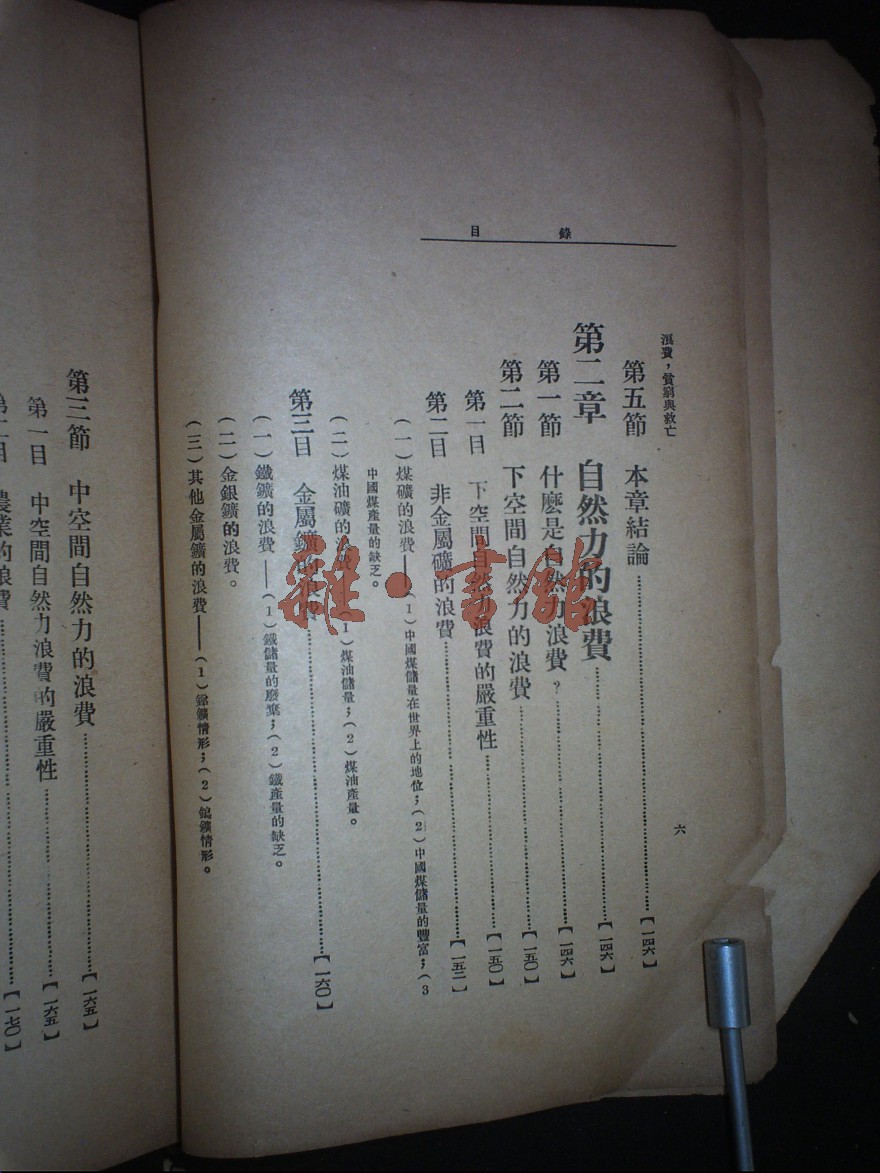 目錄
浪費，貧窮與救亡
六
第五節 本章結論……【一四六】
第二章 自然力的浪費……【一四六】
第一節 什麽是自然力浪費？……【一四六】
第二節 下空間自然力的浪費……【一五〇】
第一目 下空間自然力浪費的嚴重性……【一五〇】
第二目 非金屬礦的浪費……【一五二】
（一）煤礦的浪費——（1）中國煤儲量在世界上的地位；（2）中國煤儲量的豐富；（3
中國煤產量的缺乏。
（二）煤油礦的浪費（1）煤油儲量；（2）煤油產量。
第三目 金屬鑛的浪費……【一六〇】
（一）鐵鑛的浪費——（1）鐵儲量的廢棄；（2）鐵產量的缺乏。
（二）金銀鑛的浪費。
（三）其他金屬鑛的浪費——（1）鑛情形；（2）鑛情形。
第三節 中空間自然力的浪費……【一六五】
第一目 中空間自然力浪費的嚴重性……【一六五】
第二目 農業的浪費……【一七〇】
雜·書館